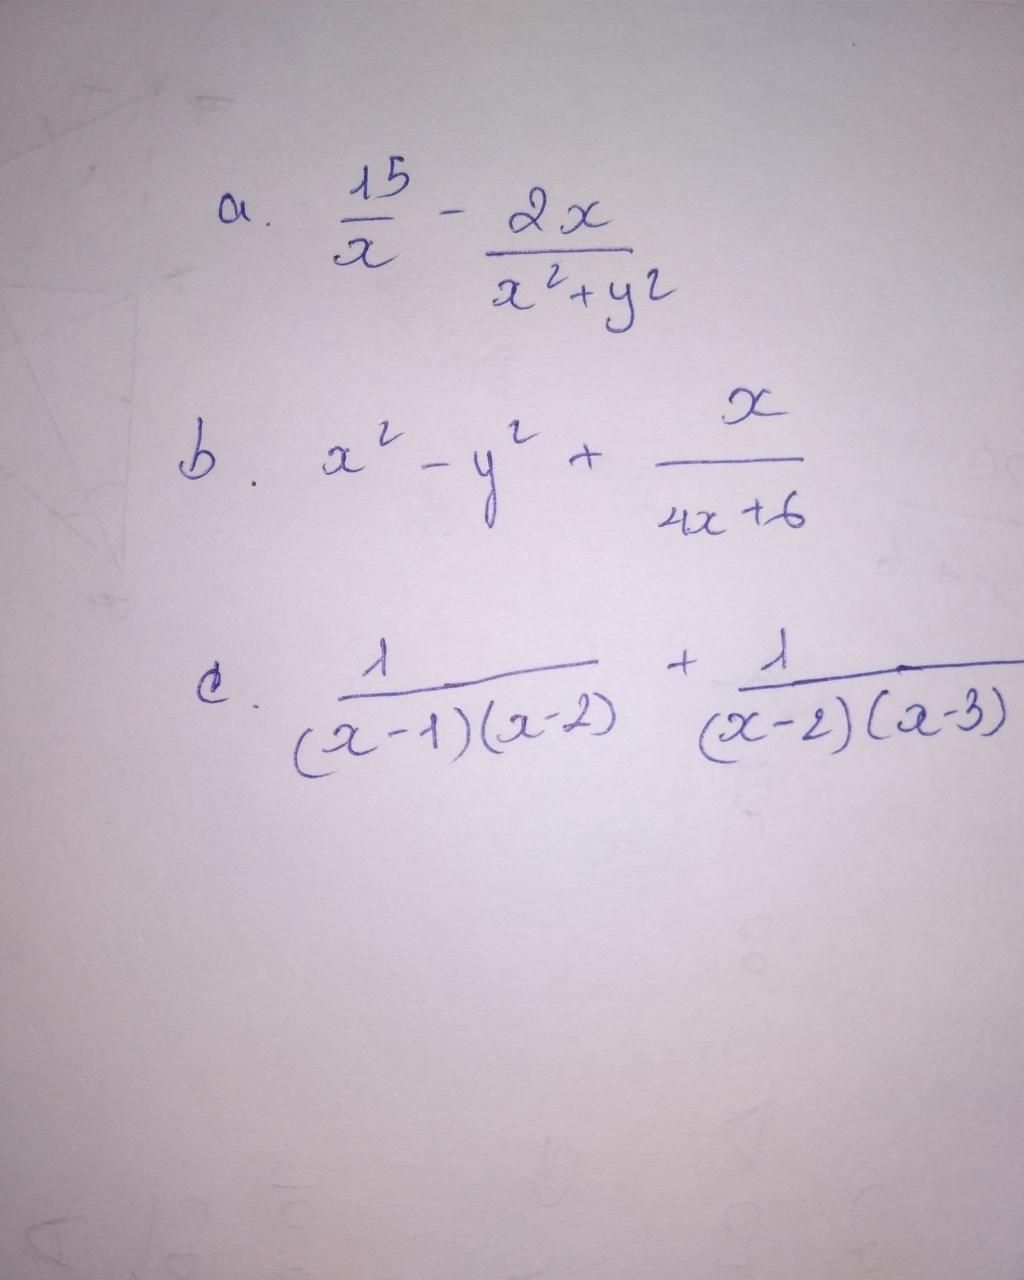 a. 15/x - 2x/(x²+y²)
b. x² - y² + x/(4x+6)
c. 1/((x-1)(x-2)) + 1/((x-2)(x-3))